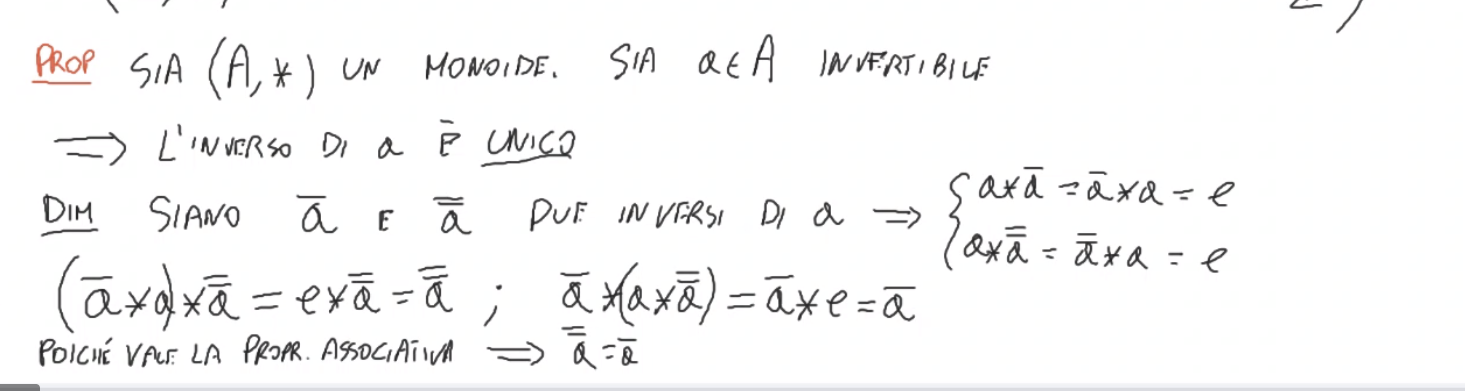 PROP SIA (A, *) UN MONOIDE. SIA a ∈ A INVERTIBILE
⟹ L'INVERSO DI a È UNICO
DIM SIANO a̅ E a̿ DUE INVERSI DI a ⟹ { a * a̅ = a̅ * a = e
a * a̿ = a̿ * a = e
(a̅ * a) * a̿ = e * a̿ = a̿ ; a̅ * (a * a̿) = a̅ * e = a̅
POICHÉ VALE LA PROPR. ASSOCIATIVA ⟹ a̿ = a̅